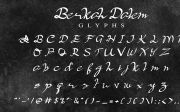 Berkah Dalem
GLYPHS
ABCDEFGHIJKLM
NOPQRSTUVWXYZ
abcdefghijklmn
opqrstuvwxyz